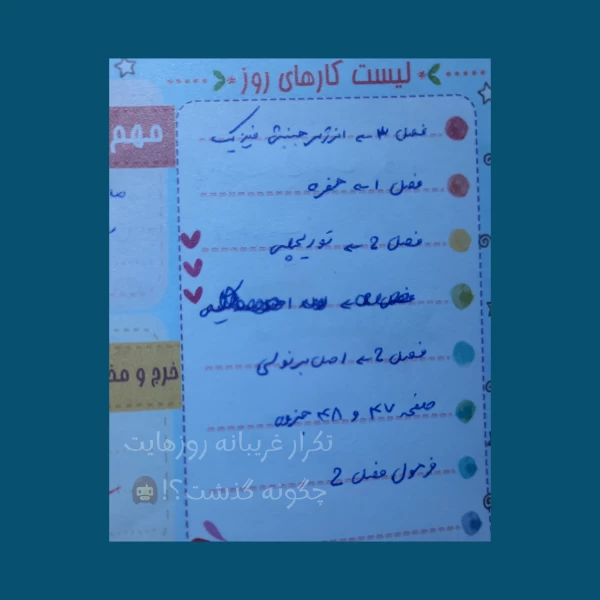 لیست کارهای روز
مهم
فصل ۳ ← انرژی جنبشی فیزیک
فصل ۱ ← حفره
فصل 2 ← توریچلی
فصل 2 ← اصل برنولی
خرج و مخ
صفحه ۴۷ و ۴۸ جزوه
تکرار غریبانه روزهایت
فرمول فصل 2
چگونه گذشت؟!